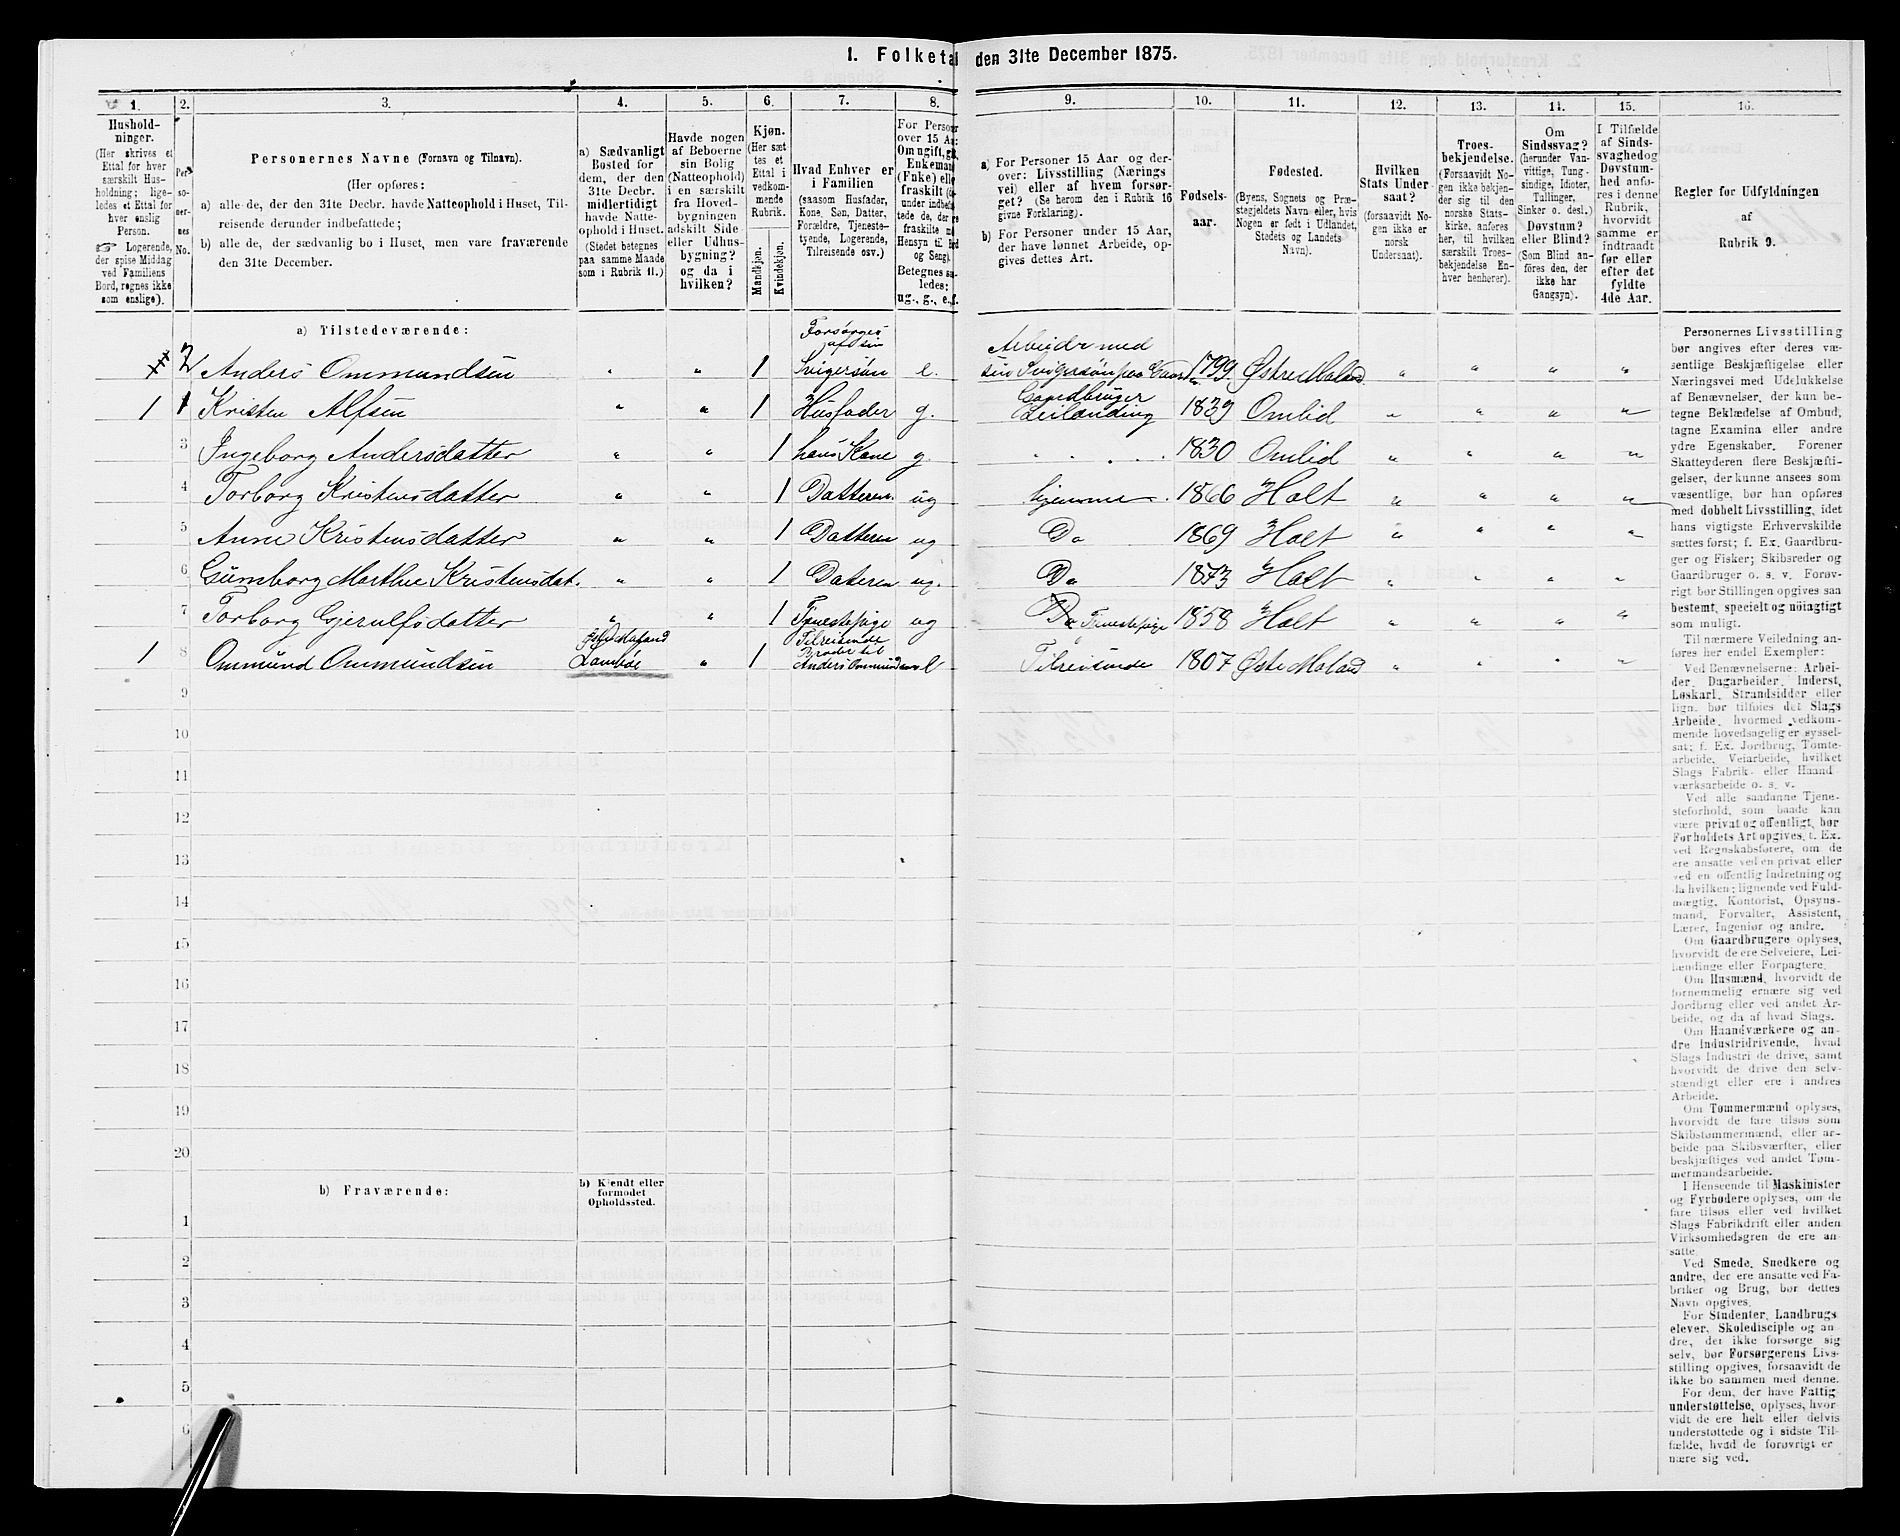 1. Folketal den 31te December 1875.
1. 2. 3. 4. 5. 6. 7. 8. 9. 10. 11. 12. 13. 14. 15. 16.
Hushold-
ninger.
(Her skrives et
Ettal for hver
særskilt Hus-
holdning; lige-
ledes et Ettal for
hver enslig
Person.
☞ Logerende,
der spise Middag
ved Familiens
Bord, regnes ikke
som enslige).
Per-
so-
ner-
nes
No.
Personernes Navne (Fornavn og Tilnavn).
(Her opføres:
a) alle de, der den 31te Decbr. havde Natteophold i Huset, Til-
reisende derunder indbefattede;
b) alle de, der sædvanlig bo i Huset, men vare fraværende
den 31te December.
a) Sædvanligt
Bosted for
dem, der den
31te Decbr.
midlertidigt
havde Natte-
ophold i Huset.
(Stedet betegnes
paa samme Maade
som i Rubrik 11.)
Havde nogen
af Beboerne
sin Bolig
(Natteophold)
i en særskilt
fra Hoved-
bygningen
adskilt Side
eller Udhus-
bygning?
og da i
hvilken?
Kjøn.
(Her sæt
tes et
Ettal i
vedkom-
mende
Rubrik.
Mandkjøn.
Kvindekjøn.
Hvad Enhver er
i Familien
(saasom Husfader,
Kone, Søn, Datter,
Forældre, Tjeneste-
tyende, Logerende,
Tilreisende osv.)
For Person
over 15 Aa
Om ugift, g
Enkeman
(Fnke) elle
fraskilt (de
under indbefat
tede de, der er
fraskilte m
Hensyn til Bord
og Seng).
Betegnes saa
ledes:
ug., g., e., f.
a) For Personer 15 Aar og der-
over: Livsstilling (Nærings
vei) eller af hvem forsør-
get? (Se herom den i Rubrik 16
givne Forklaring).
b) For Personer under 15 Aar,
der have lønnet Arbeide, op-
gives dettes Art.
Fødsels-
aar.
Fødested.
(Byens, Sognets og Præ-
stegjeldets Navn eller, hvis
Nogen er født i Udlandet,
Stedets og Landets
Navn).
Hvilken
Stats Under-
saat?
(forsaavidt No-
gen ikke er
norsk
Undersaat).
Troes-
bekjendelse.
(Forsaavidt No-
gen ikke bekjen-
der sig til den
norske Stats-
kirke, anføres
her, til hvilken
særskilt Troes-
bekjendelse En-
hver henhører).
Om
Sindssvag?
(herunder Van-
vittige, Tung-
sindige, Idioter,
Tullinger,
Sinker o. desl.)
Døvstum?
eller Blind?
(Som Blind an-
føres den, der
ikke har
Gangsyn).
I Tilfælde
af Sinds-
svaghed og
Døvstum-
hed anfø-
res i denne
Rubrik,
hvorvidt
samme er
indtraadt
før eller
efter det
fyldte
4de Aar.
Regler for Udfyldningen
af
Rubrik 9.
a) Tilstedeværende:
2 Anders Ommundsen " " 1 Forsørges af sin Svigersøn e. Arbeider med sin Svigersøn paa Gaard 1799 Østre Moland " " " "
1 1 Kristen Alfsen " " 1 Husfader g. Gaardbruger Leilænding 1839 Omlid " " " "
3 Ingeborg Andersdatter " " 1 hans Kone g. 1830 Omlid " " " "
4 Torborg Kristensdatter " " 1 Datteren ug Hjemme 1866 Holt " " " "
5 Anne Kristensdatter " " 1 Datteren ug Do 1869 Holt " " " "
6 Gunborg Marthe Kristensdat. " " 1 Dateren ug. Do 1873 Holt " " " "
7 Torborg Gjerulfsdatter " " 1 Tjenestepige ug Do Tjenestepige 1858 Holt " " " "
1 8 Ommund Ommundsen Østre Moland " 1 Tilreisende Broder til Anders Ommundsen e Tilreisende 1807 Østre Moland " " " "
9
10
11
12
13
14
15
16
17
18
19
20
b) Fraværende:
b) Kjendt eller
formodet
Opholdssted.
1
2
3
4
5
6
Personernes Livsstilling
bør angives efter deres væ-
sentlige Beskjæftigelse eller
Næringsvei med Udelukkelse
af Benævnelser, der kun be-
tegne Beklædelse af Ombud,
tagne Examina eller andre
ydre Egenskaber. Forener
Skatteyderen flere Beskjæfti-
gelser, der kunne ansees som
væsentlige, bør han opføres
med dobbelt Livsstilling, idet
hans vigtigste Erhvervskilde
sættes først; f. Ex. Gaardbru-
ger og Fisker; Skibsreder og
Gaardbruger o. s. v. Forøv-
rigt bør Stillingen opgives saa
bestemt, specielt og nöiagtigt
som muligt.
Til nærmere Veiledning an-
føres her endel Exempler:
Ved Benævnelserne: Arbei-
der, Dagarbeider, Inderst,
Løskarl, Strandsidder eller
lign. bør tilføies det Slags
Arbeide, hvormed vedkom-
mende hovedsagelig er syssel-
sat; f. Ex. Jordbrug, Tomte-
arbeide, Veiarbeide, hvilket
Slags Fabrik- eller Haand
værksarbeide o. s. v.
Ved alle saadanne Tjene-
steforhold, som baade kan
være privat og offentligt, bør
Forholdets Art opgives, t. Ex.
ved Regnskabsførere, om de
ere ansatte ved en privat eller
ved en offentlig Indretning og
da hvilken; lignende ved Fuld-
mægtig, Kontorist, Opsyns-
mand, Forvalter, Assistent,
Lærer, Ingeniør og andre.
Om Gaardbrugere oplyses,
hvorvidt de ere Selveiere, Lei-
lændinge eller Forpagtere.
Om Husmænd, hvorvidt de
fornemmelig ernære sig ved
Jordbrug eller ved andet Ar-
beide, og da af hvad Slags.
Om Haandværkere og an-
dre Industridrivende, hvad
Slags Industri de drive, samt
hvorvidt de drive den selv-
stændigt eller ere i andres
Arbeide.
Om Tømmermænd oplyses,
hvorvidt de fare tilsøs som
Skibstømmermænd, eller ar-
beide paa Skibsværfter, eller
beskjæftiges ved andet Tøm-
mermandsarbeide.
I Henseende til Maskinister
og Fyrbødere oplyses, om de
fare tilsøs eller ved hvilket
Slags Fabrikdrift eller anden
Virksomhedsgren de ere an-
satte.
Ved Smede, Snedkere og
andre, der ere ansatte ved Fa-
briker og Brug, bør dettes
Navn opgives.
For Studenter, Landbrugs
elever, Skoledisciple og an-
dre, der ikke forsørge sig
selv, bør Forsørgerens Livs-
stilling opgives, forsaavidt de
ikke bo sammen med denne.
For dem, der have Fattig-
understöttelse, oplyses, hvor-
vidt de ere helt eller delvis
understøttede og i sidste Til-
fælde, hvad de forøvrigt er
nære sig ved.